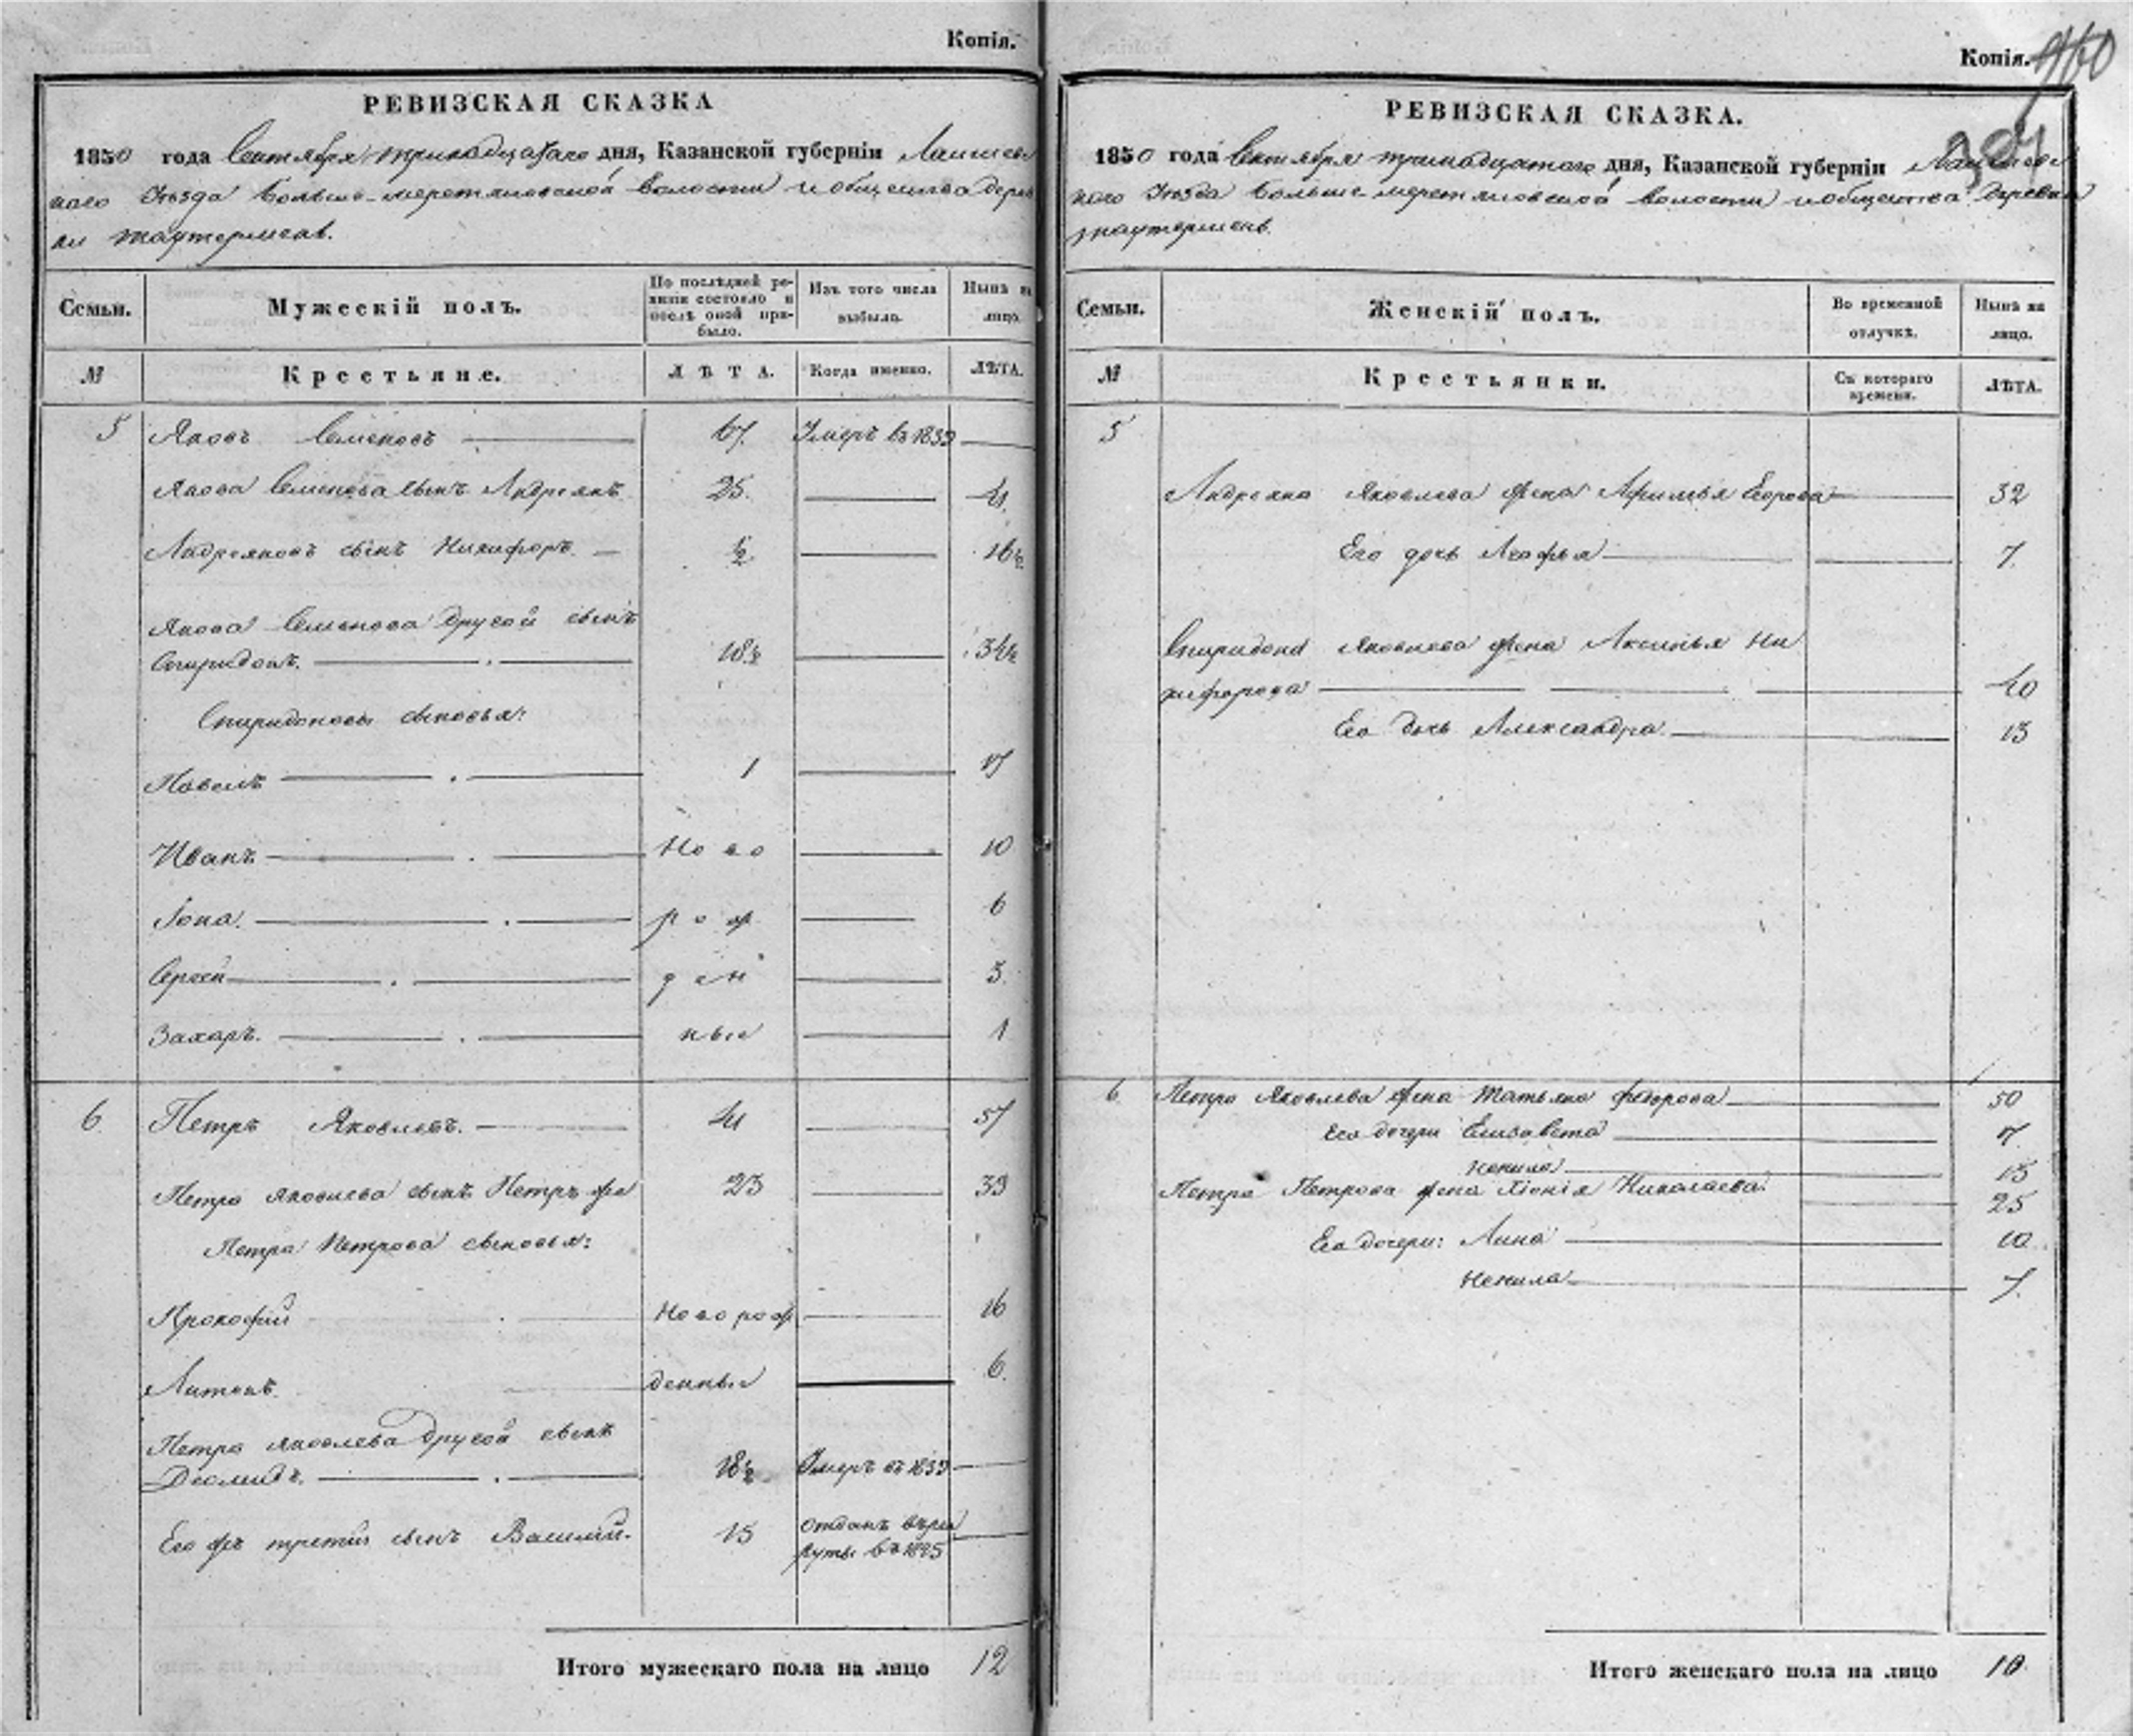 Копія.
РЕВИЗСКАЯ СКАЗКА
1850 года Сентября тринадцатаго дня, Казанской губерніи Лаишев
скаго Уѣзда Больше-меретяковской волости и общества дерев
ни Таутермень.
Семьи.
Мужескій полъ.
По послѣдней ре-
визіи состояло и
послѣ оной при-
было.
Изъ того числа
выбыло.
Нынѣ на
лицо.
№
Крестьяне.
ЛѢТА.
Когда именно.
ЛѢТА.
5 Яковъ Семеновъ 67. Умеръ въ 1839
Якова Семенова сынъ Андреянъ 25. 41.
Андреяновъ сынъ Никифоръ. ½ 16½
Якова Семенова другой сынъ
Спиридонъ. 18½ 34½
Спиридоновы сыновья:
Павелъ 1 17
Иванъ Ново 10
Іона. рож 6
Сергей ден 3.
Захаръ. ные 1
6. Петръ Яковлевъ. 41 57
Петра Яковлева сынъ Петръ же 23 39
Петра Петрова сыновья:
Прокофий Новорож 16
Антонъ денные 6.
Петра Яковлева другой сынъ
Диомидъ. 18½ Умеръ въ 1839
Его же третий сынъ Василий. 15 Отданъ въ рек
руты въ 1845
Итого мужескаго пола на лицо 12
Копія. 960
РЕВИЗСКАЯ СКАЗКА.
1850 года Сентября тринадцатаго дня, Казанской губерніи Лаишев
скаго Уѣзда Больше-меретяковской волости и общества деревни
Таутермень.
Семьи.
Женскій полъ.
Во временной
отлучкѣ.
Нынѣ на
лицо.
№
Крестьянки.
Съ котораго
времени.
ЛѢТА.
5
Андреяна Яковлева жена Афимья Егорова 32
Его дочь Агафья 7.
Спиридона Яковлева жена Аксинья Ни
кифорова 40
Его дочь Александра. 13
6. Петра Яковлева жена Татьяна Федорова 50
Его дочери Елизавета 17.
Ненила 15
Петра Петрова жена Хіонія Николаева. 25
Его дочери: Анна 10.
Ненила 7.
Итого женскаго пола на лицо 10